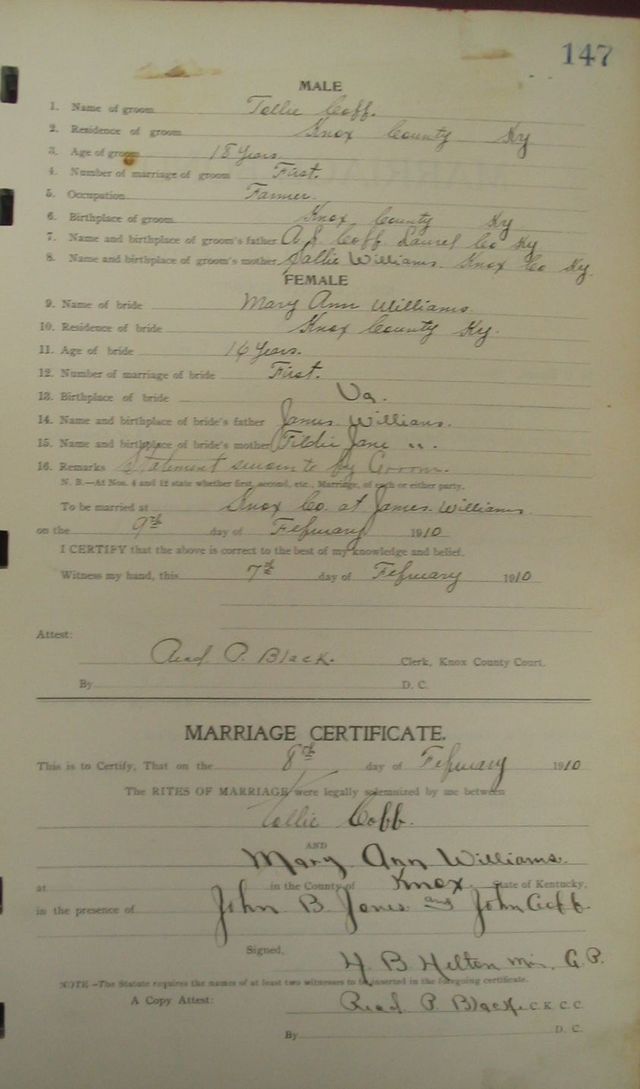 147
MALE
1. Name of groom Tollie Cobb.
2. Residence of groom Knox County Ky
3. Age of groom 18 Years.
4. Number of marriage of groom First.
5. Occupation Farmer.
6. Birthplace of groom Knox County Ky
7. Name and birthplace of groom's father A J Cobb Laurel Co Ky
8. Name and birthplace of groom's mother Sallie Williams. Knox Co Ky.
FEMALE
9. Name of bride Mary Ann Williams
10. Residence of bride Knox County Ky.
11. Age of bride 16 Years.
12. Number of marriage of bride First.
13. Birthplace of bride Va.
14. Name and birthplace of bride's father James Williams.
15. Name and birthplace of bride's mother Tildie Jane " .
16. Remarks Statement sworn to by Groom.
N. B.—At Nos. 4 and 12 state whether first, second, etc., Marriage, of each or either party.
To be married at Knox Co. at James. Williams.
on the 9th day of February 1910
I CERTIFY that the above is correct to the best of my knowledge and belief.
Witness my hand, this 7th day of February 1910
Attest:
Read P. Black. Clerk, Knox County Court.
By D. C.
MARRIAGE CERTIFICATE.
This is to Certify, That on the 8th day of February 1910
The RITES OF MARRIAGE were legally solemnized by me between
Tollie Cobb.
AND
Mary Ann Williams.
at in the County of Knox, State of Kentucky,
in the presence of John B Jones and John Cobb.
Signed, H. B Helton min. G.P.
NOTE—The Statute requires the names of at least two witnesses to be inserted in the foregoing certificate.
A Copy Attest: Read P. Black C. K. C. C.
By D. C.